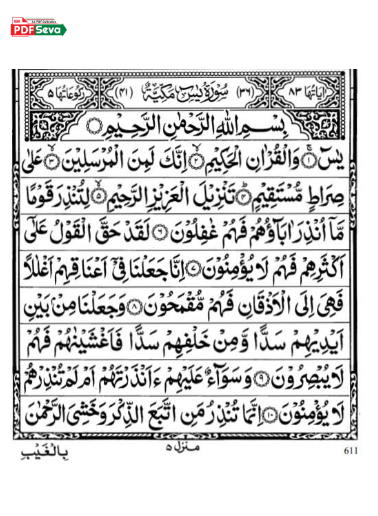 PDFSeva
اٰیَاتُهَا ٨٣ (٣٦) سُوْرَةُ يٰسٓ مَكِّيَّةٌ (٤١) رُكُوْعَاتُهَا ٥
بِسْمِ اللّٰهِ الرَّحْمٰنِ الرَّحِيْمِ
يٰسٓ ۝١ وَالْقُرْاٰنِ الْحَكِيْمِ ۝٢ اِنَّكَ لَمِنَ الْمُرْسَلِيْنَ ۝٣ عَلٰى
صِرَاطٍ مُّسْتَقِيْمٍ ۝٤ تَنْزِيْلَ الْعَزِيْزِ الرَّحِيْمِ ۝٥ لِتُنْذِرَ قَوْمًا
مَّاۤ اُنْذِرَ اٰبَآؤُهُمْ فَهُمْ غٰفِلُوْنَ ۝٦ لَقَدْ حَقَّ الْقَوْلُ عَلٰۤى
اَكْثَرِهِمْ فَهُمْ لَا يُؤْمِنُوْنَ ۝٧ اِنَّا جَعَلْنَا فِيْۤ اَعْنَاقِهِمْ اَغْلٰلًا
فَهِيَ اِلَى الْاَذْقَانِ فَهُمْ مُّقْمَحُوْنَ ۝٨ وَجَعَلْنَا مِنْۢ بَيْنِ
اَيْدِيْهِمْ سَدًّا وَّمِنْ خَلْفِهِمْ سَدًّا فَاَغْشَيْنٰهُمْ فَهُمْ
لَا يُبْصِرُوْنَ ۝٩ وَسَوَآءٌ عَلَيْهِمْ ءَاَنْذَرْتَهُمْ اَمْ لَمْ تُنْذِرْهُمْ
لَا يُؤْمِنُوْنَ ۝١٠ اِنَّمَا تُنْذِرُ مَنِ اتَّبَعَ الذِّكْرَ وَخَشِيَ الرَّحْمٰنَ
بِالْغَيْبِ منزل ٥ 611